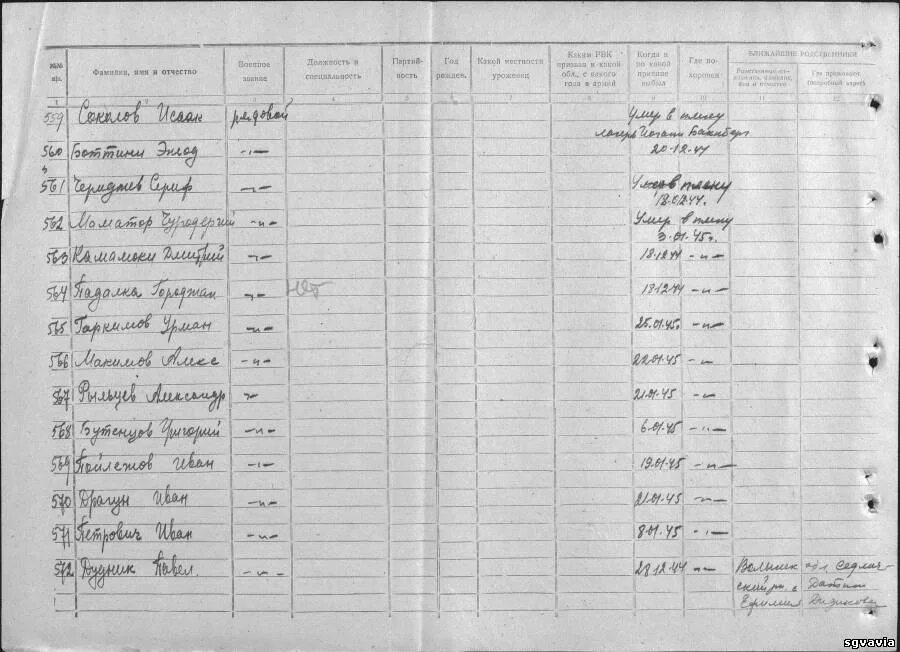 №№ п/п. Фамилия, имя и отчество Военное звание Должность и специальность Партийность Год рожден. Какой местности уроженец Каким РВК призван и какой обл., с какого года в армии Когда и по какой причине выбыл Где похоронен БЛИЖАЙШИЕ РОДСТВЕННИКИ
Где проживают
1 2 3 4 5 6 7 8 9 10 11 12
559 Соколов Исаак рядовой Умер в плену
лагерь
20.12.44
560 Боттини —"—
561 Сериф —"— Умер в плену
18.02.44.
562 Маматор —"— Умер в плену
3.01.45г.
563 Камамоки Дмитрий —"— 18.12.44 —"—
564 Падалка Городжан —"— 13.12.44 —"—
565 Гаркимов Урман —"— 25.01.45. —"—
566 Макимов Алекс —"— 22.01.45 —"—
567 Рыльцев Александр —"— 21.01.45 —"—
568 Бутенцов Григорий —"— 6.01.45 —"—
569 Пойлежов Иван —"— 19.01.45 —"—
570 Драгун Иван —"— 21.01.45 —"—
571 Петрович Иван —"— 8.01.45 —"—
572 Дудник Павел. —"— 28.12.44 —"— Волынск обл.
Ефимия
sgvavia